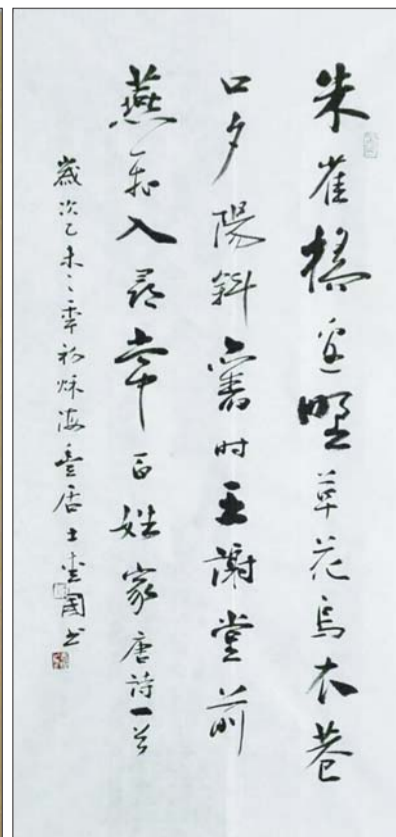 朱雀橋邊野草花烏衣巷
口夕陽斜舊時王謝堂前
燕飛入尋常百姓家唐詩一首
歲次乙未之年初秋海居士國书